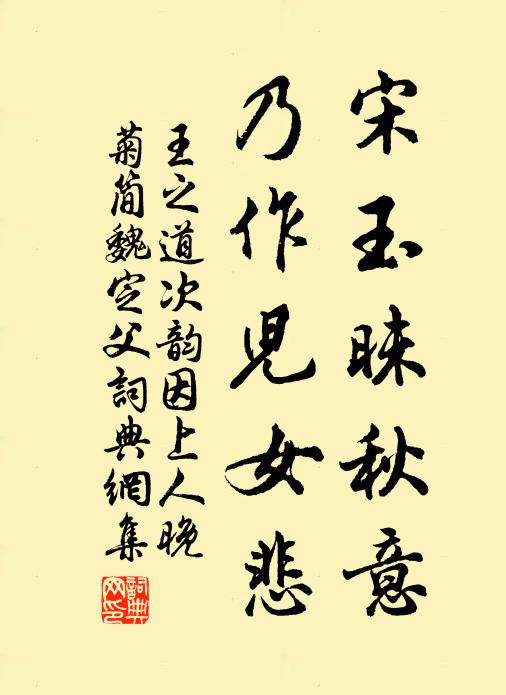 宋玉昧秋意
乃作児女悲
王之道次韵因上人晚
菊简魏定父詞典網集
詞典网印